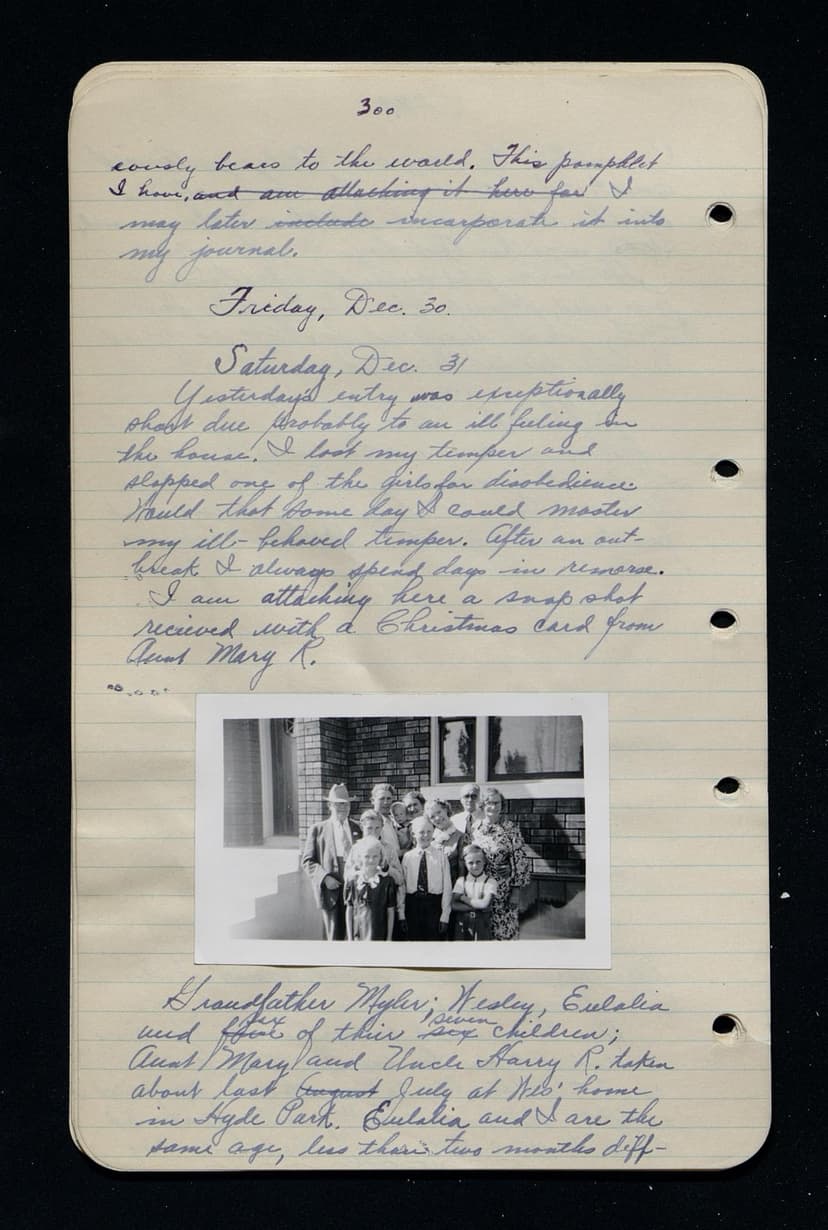 300
ously bears to the world. This pamphlet
I have, and am attaching it here for I
may later include incorporate it into
my journal.
Friday, Dec. 30.
Saturday, Dec. 31
Yesterday's entry was exceptionally
short due probably to an ill feeling in
the house. I lost my temper and
slapped one of the girls for disobedience.
Would that some day I could master
my ill-behaved temper. After an out-
break I always spend days in remorse.
I am attaching here a snap shot
recieved with a Christmas card from
Aunt Mary R.
Grandfather Myler; Wesley, Eulalia
and five six of their six seven children;
Aunt Mary and Uncle Harry R. taken
about last August July at Wes' home
in Hyde Park. Eulalia and I are the
same age, less than two months diff-